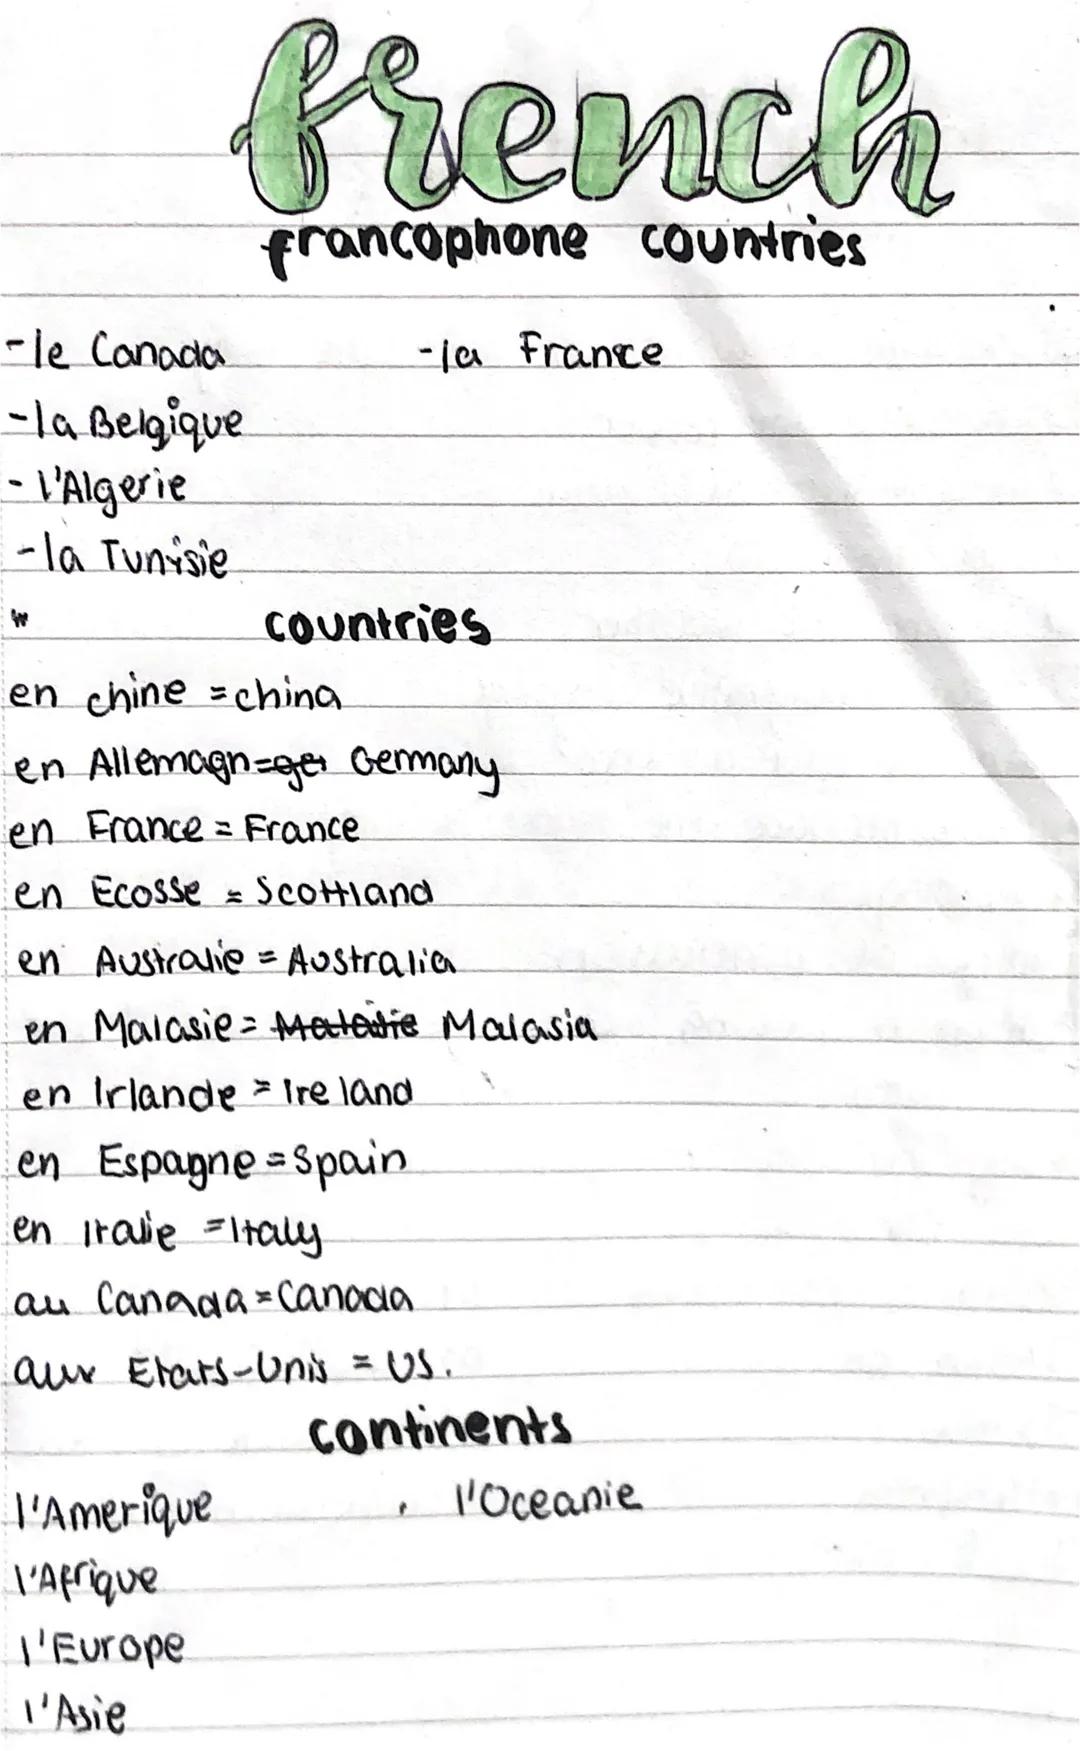 french
francophone countries
-le Canada -la France
-la Belgique
- l'Algerie
-la Tunisie
countries
en chine = china
en Allemagn= Germany
en France = France
en Ecosse = Scottland
en Australie = Australia
en Malasie = Malasia
en Irlande = Ireland
en Espagne = Spain
en Italie = Italy
au Canada = Canada
aux Etats-Unis = US.
continents
l'Amerique , l'Oceanie
l'Afrique
l'Europe
l'Asie